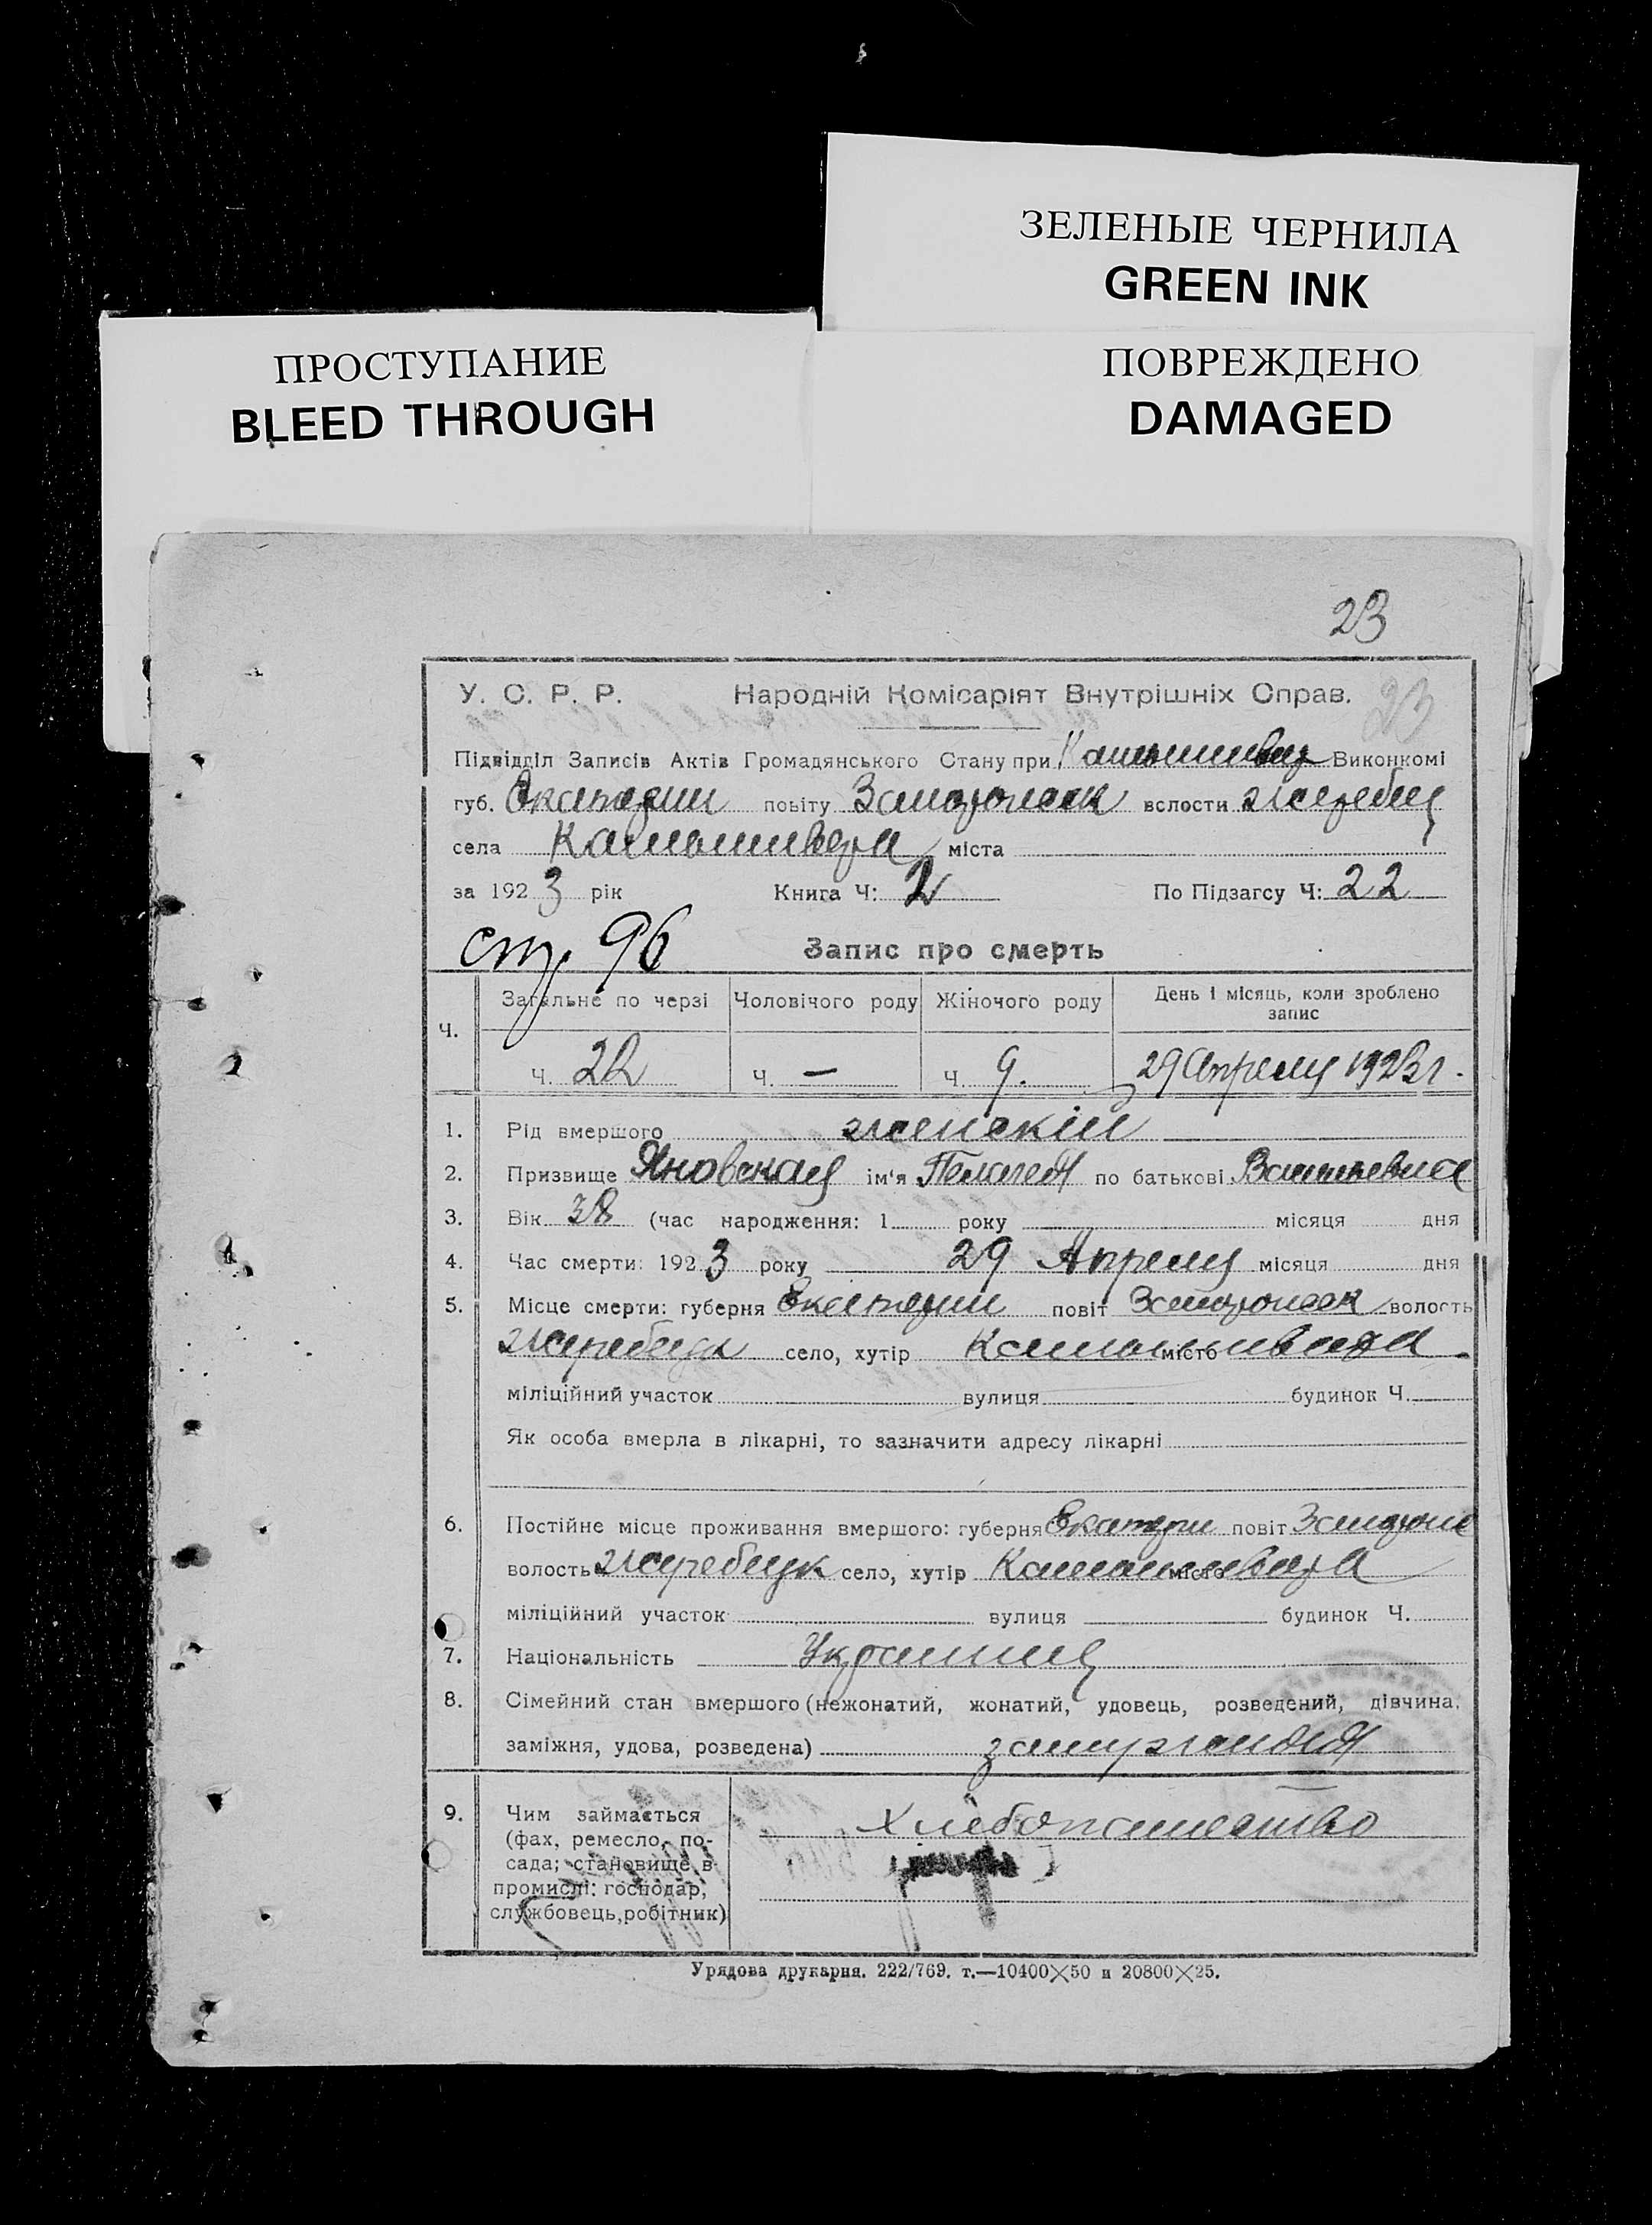 ЗЕЛЕНЫЕ ЧЕРНИЛА
GREEN INK
ПРОСТУПАНИЕ
BLEED THROUGH
ПОВРЕЖДЕНО
DAMAGED
23
У. С. Р. Р. Народній Комісаріят Внутрішніх Справ. 23
Підвідділ Записів Актів Громадянського Стану при Виконкомі
губ. Екатерин повіту Запорожск волости Жеребец
села Камышиваха міста
за 1923 рік Книга Ч: 2 По Підзагсу Ч: 22
стр. 96 Запис про смерть
Ч. Загальне по черзі Чоловічого роду Жіночого роду День і місяць, коли зроблено запис
Ч. 22 Ч. — Ч. 9. 29 Апреля 1923 г.
1. Рід вмершого женскій
2. Призвище Яновская ім'я Пелагея по батькові Васильевна
3. Вік 38 (час народження: 1 року місяця дня
4. Час смерти: 1923 року 29 Апреля місяця дня
5. Місце смерти: губерня Екатерин повіт Запорожск волость
Жеребецк село, хутір Камышиваха місто
міліційний участок вулиця будинок Ч.
Як особа вмерла в лікарні, то зазначити адресу лікарні
6. Постійне місце проживання вмершого: губерня Екатерин повіт Запорож
волость Жеребецк село, хутір Камышиваха місто
міліційний участок вулиця будинок Ч.
7. Національність Украинец
8. Сімейний стан вмершого (нежонатий, жонатий, удовець, розведений, дівчина,
заміжня, удова, розведена) замужняя
9. Чим займається Хлебопашество
(фах, ремесло, по-
сада; становище в
промислі: господар,
службовець, робітник)
Урядова друкарня. 222/769. т.—10400×50 и 20800×25.